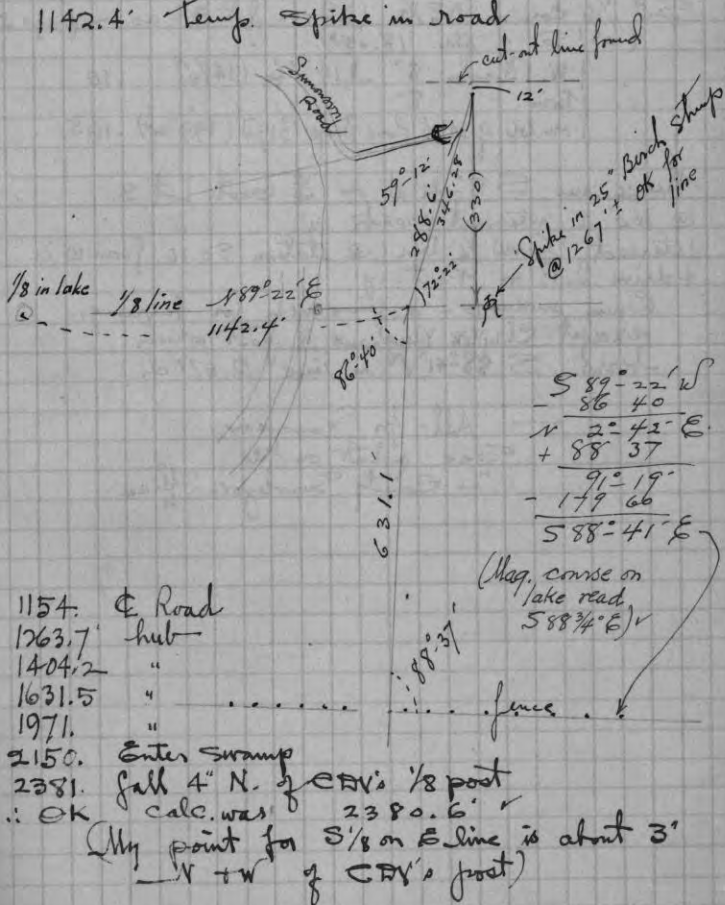 1142.4' temp. spike in road
cut-out line found
Simonson
Road
12'
59°-12'
288.6'
346.28
(330)
Spike in 25" Birch Stump
@ 1267' ± OK for
line
72°-22'
1/8 in lake
1/8 line N89°-22'E
1142.4'
86°-40'
S 89°-22' W
- 86 40
N 2°-42' E.
+ 88 37
91°-19'
- 179 60
S 88°-41' E
631.1'
(Mag. course on
lake read
S 88 3/4° E) ✓
88°-37'
1154. ℄ Road
1263.7' hub
1404.2 "
1631.5 "
fence
1971. "
2150. Enter swamp
2381. fall 4" N. of CDV's 1/8 post
∴ OK calc. was 2380.6' ✓
(My point for S 1/8 on E line is about 3"
N + W of CDV's post)